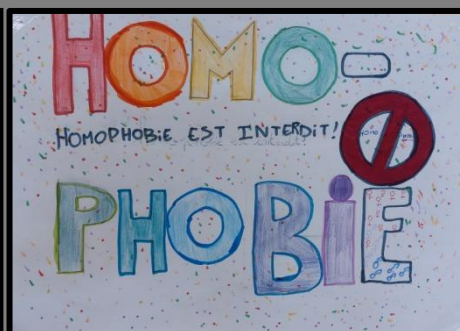 HOMO-
HOMOPHOBiE EST INTERDiT!
PHOBiE